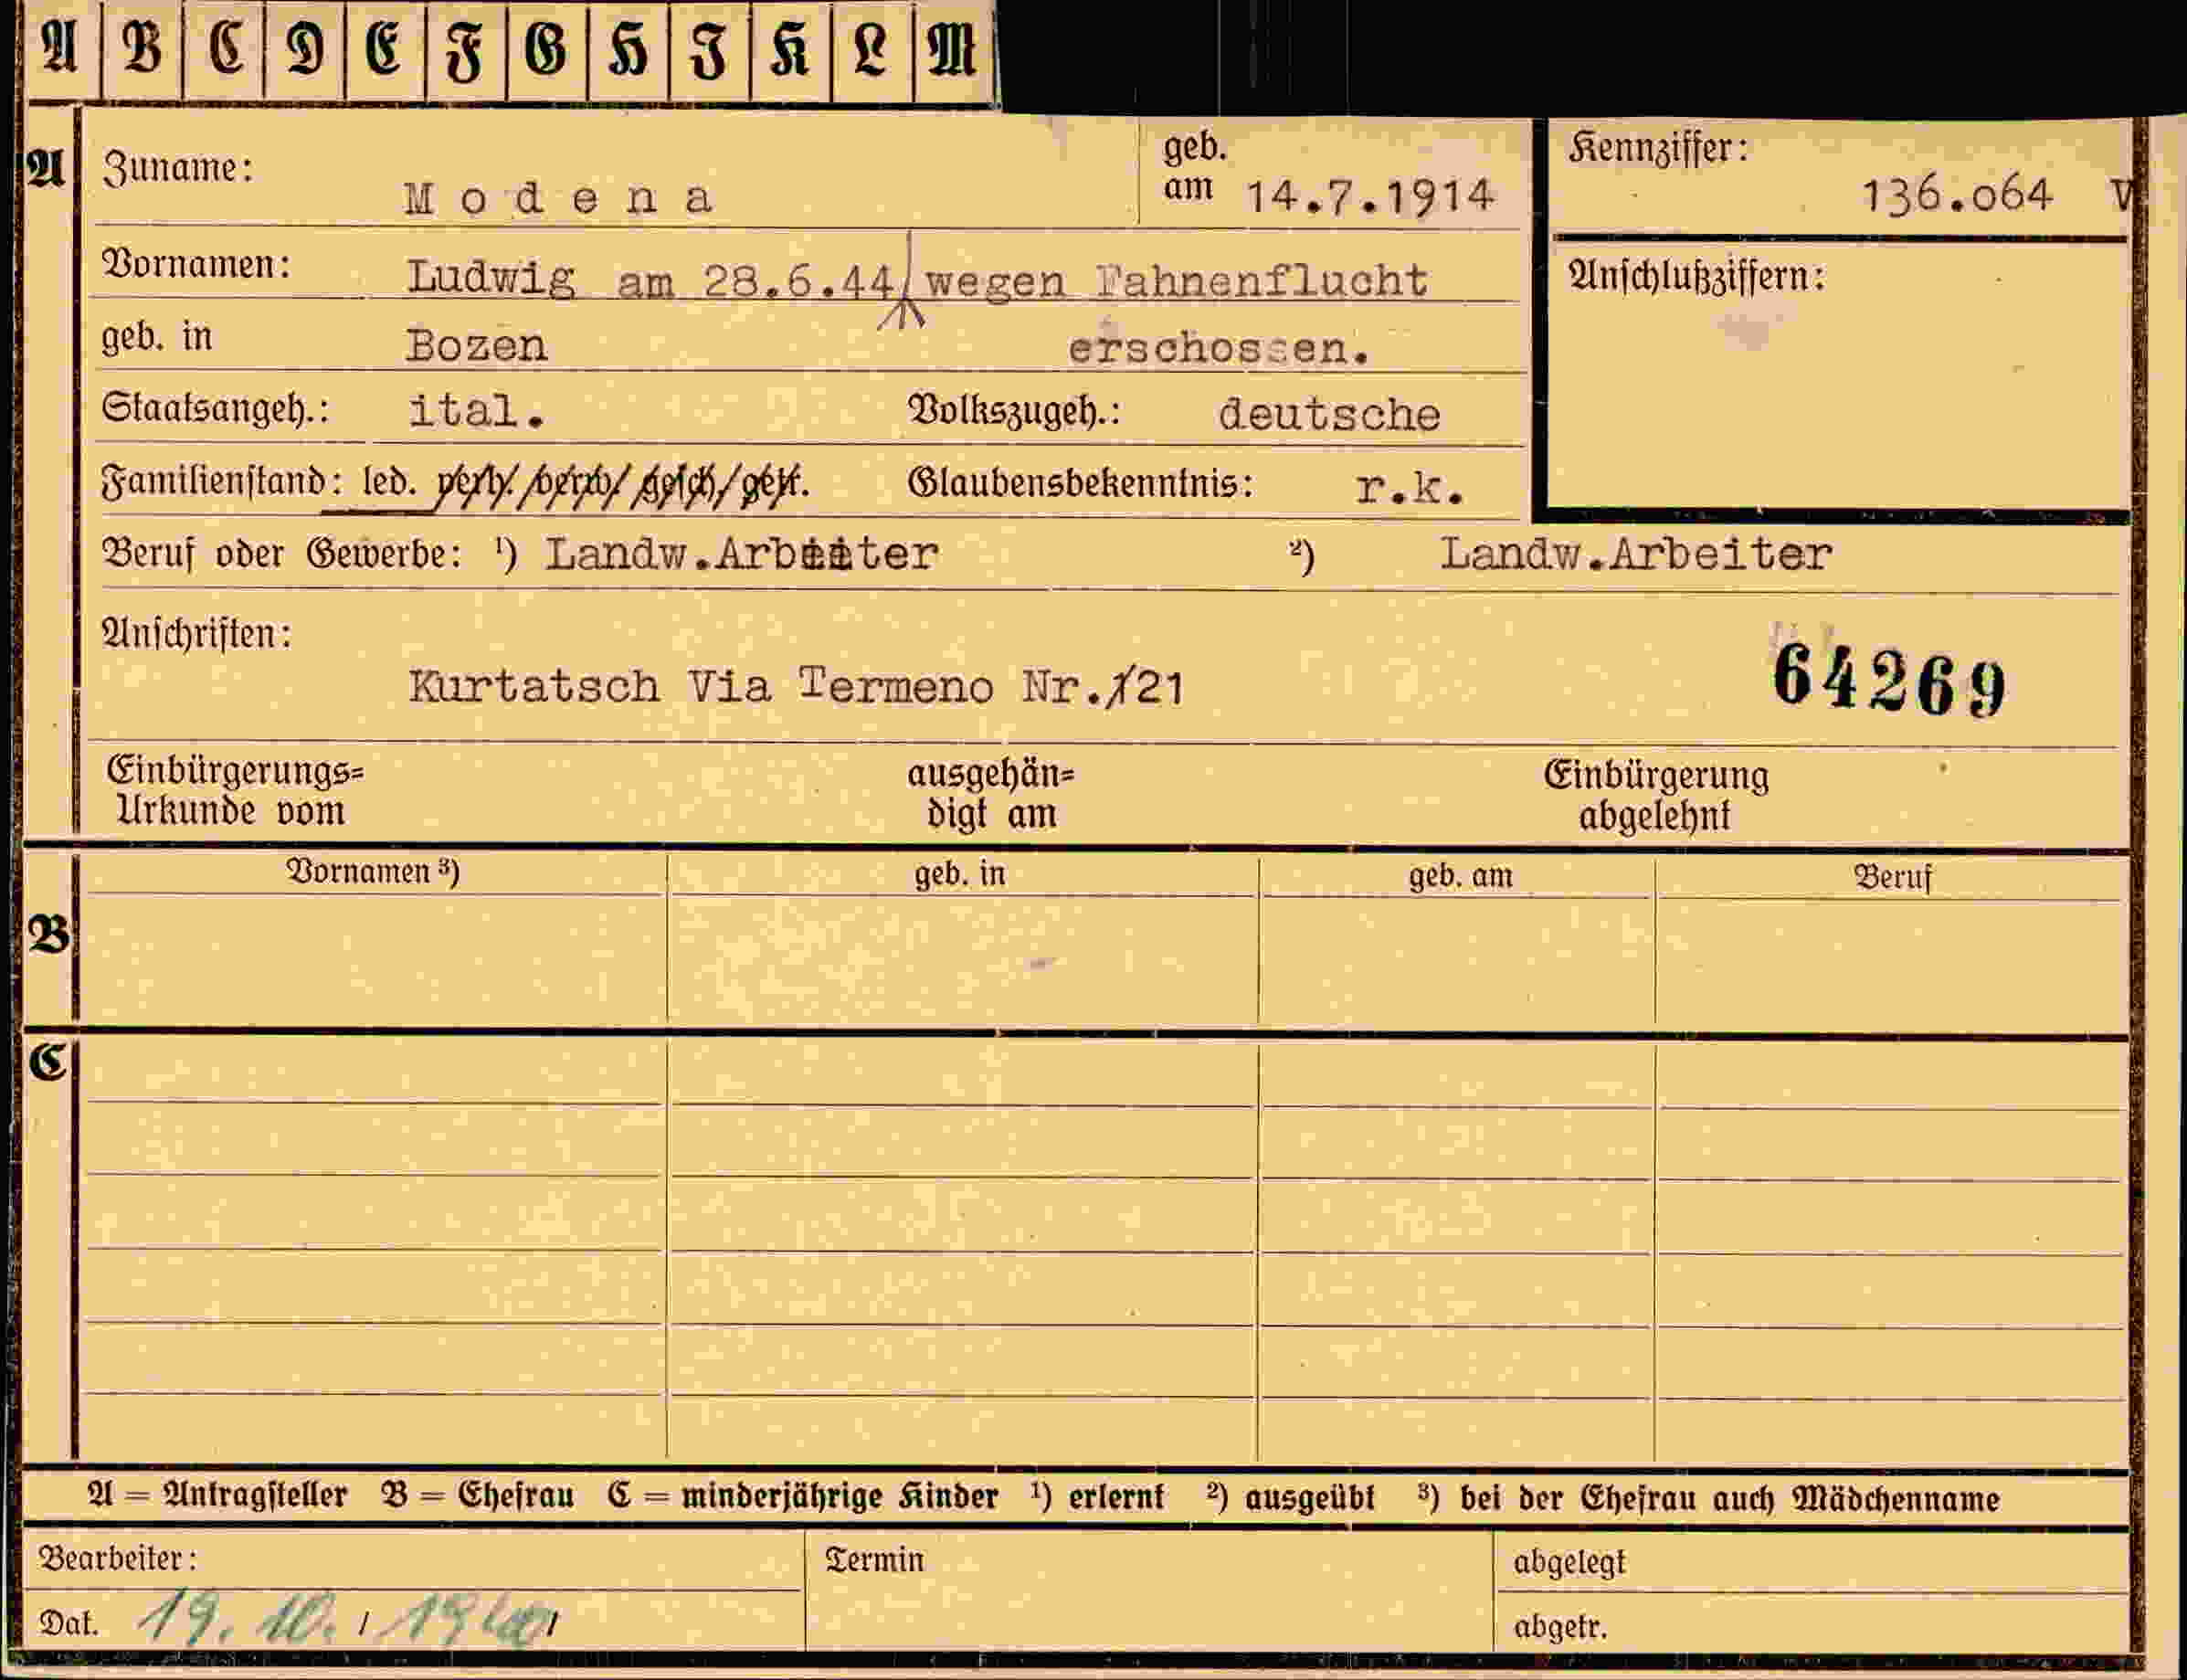 A B C D E F G H I K L M
A Zuname: Modena geb. am 14.7.1914 Kennziffer: 136.o64 V
Vornamen: Ludwig am 28.6.44 wegen Fahnenflucht Anschlußziffern:
geb. in Bozen erschossen.
Staatsangeh.: ital. Volkszugeh.: deutsche
Familienstand: led. verh. verw. gesch. getr. Glaubensbekenntnis: r.k.
Beruf oder Gewerbe: ¹) Landw.Arbeiter ²) Landw.Arbeiter
Anschriften:
Kurtatsch Via Termeno Nr.121 64269
Einbürgerungs= ausgehän= Einbürgerung
Urkunde vom digt am abgelehnt
Vornamen ³) geb. in geb. am Beruf
B
C
A = Antragsteller B = Ehefrau C = minderjährige Kinder ¹) erlernt ²) ausgeübt ³) bei der Ehefrau auch Mädchenname
Bearbeiter: Termin abgelegt
Dat. 19. 10. / 1940 / abgetr.